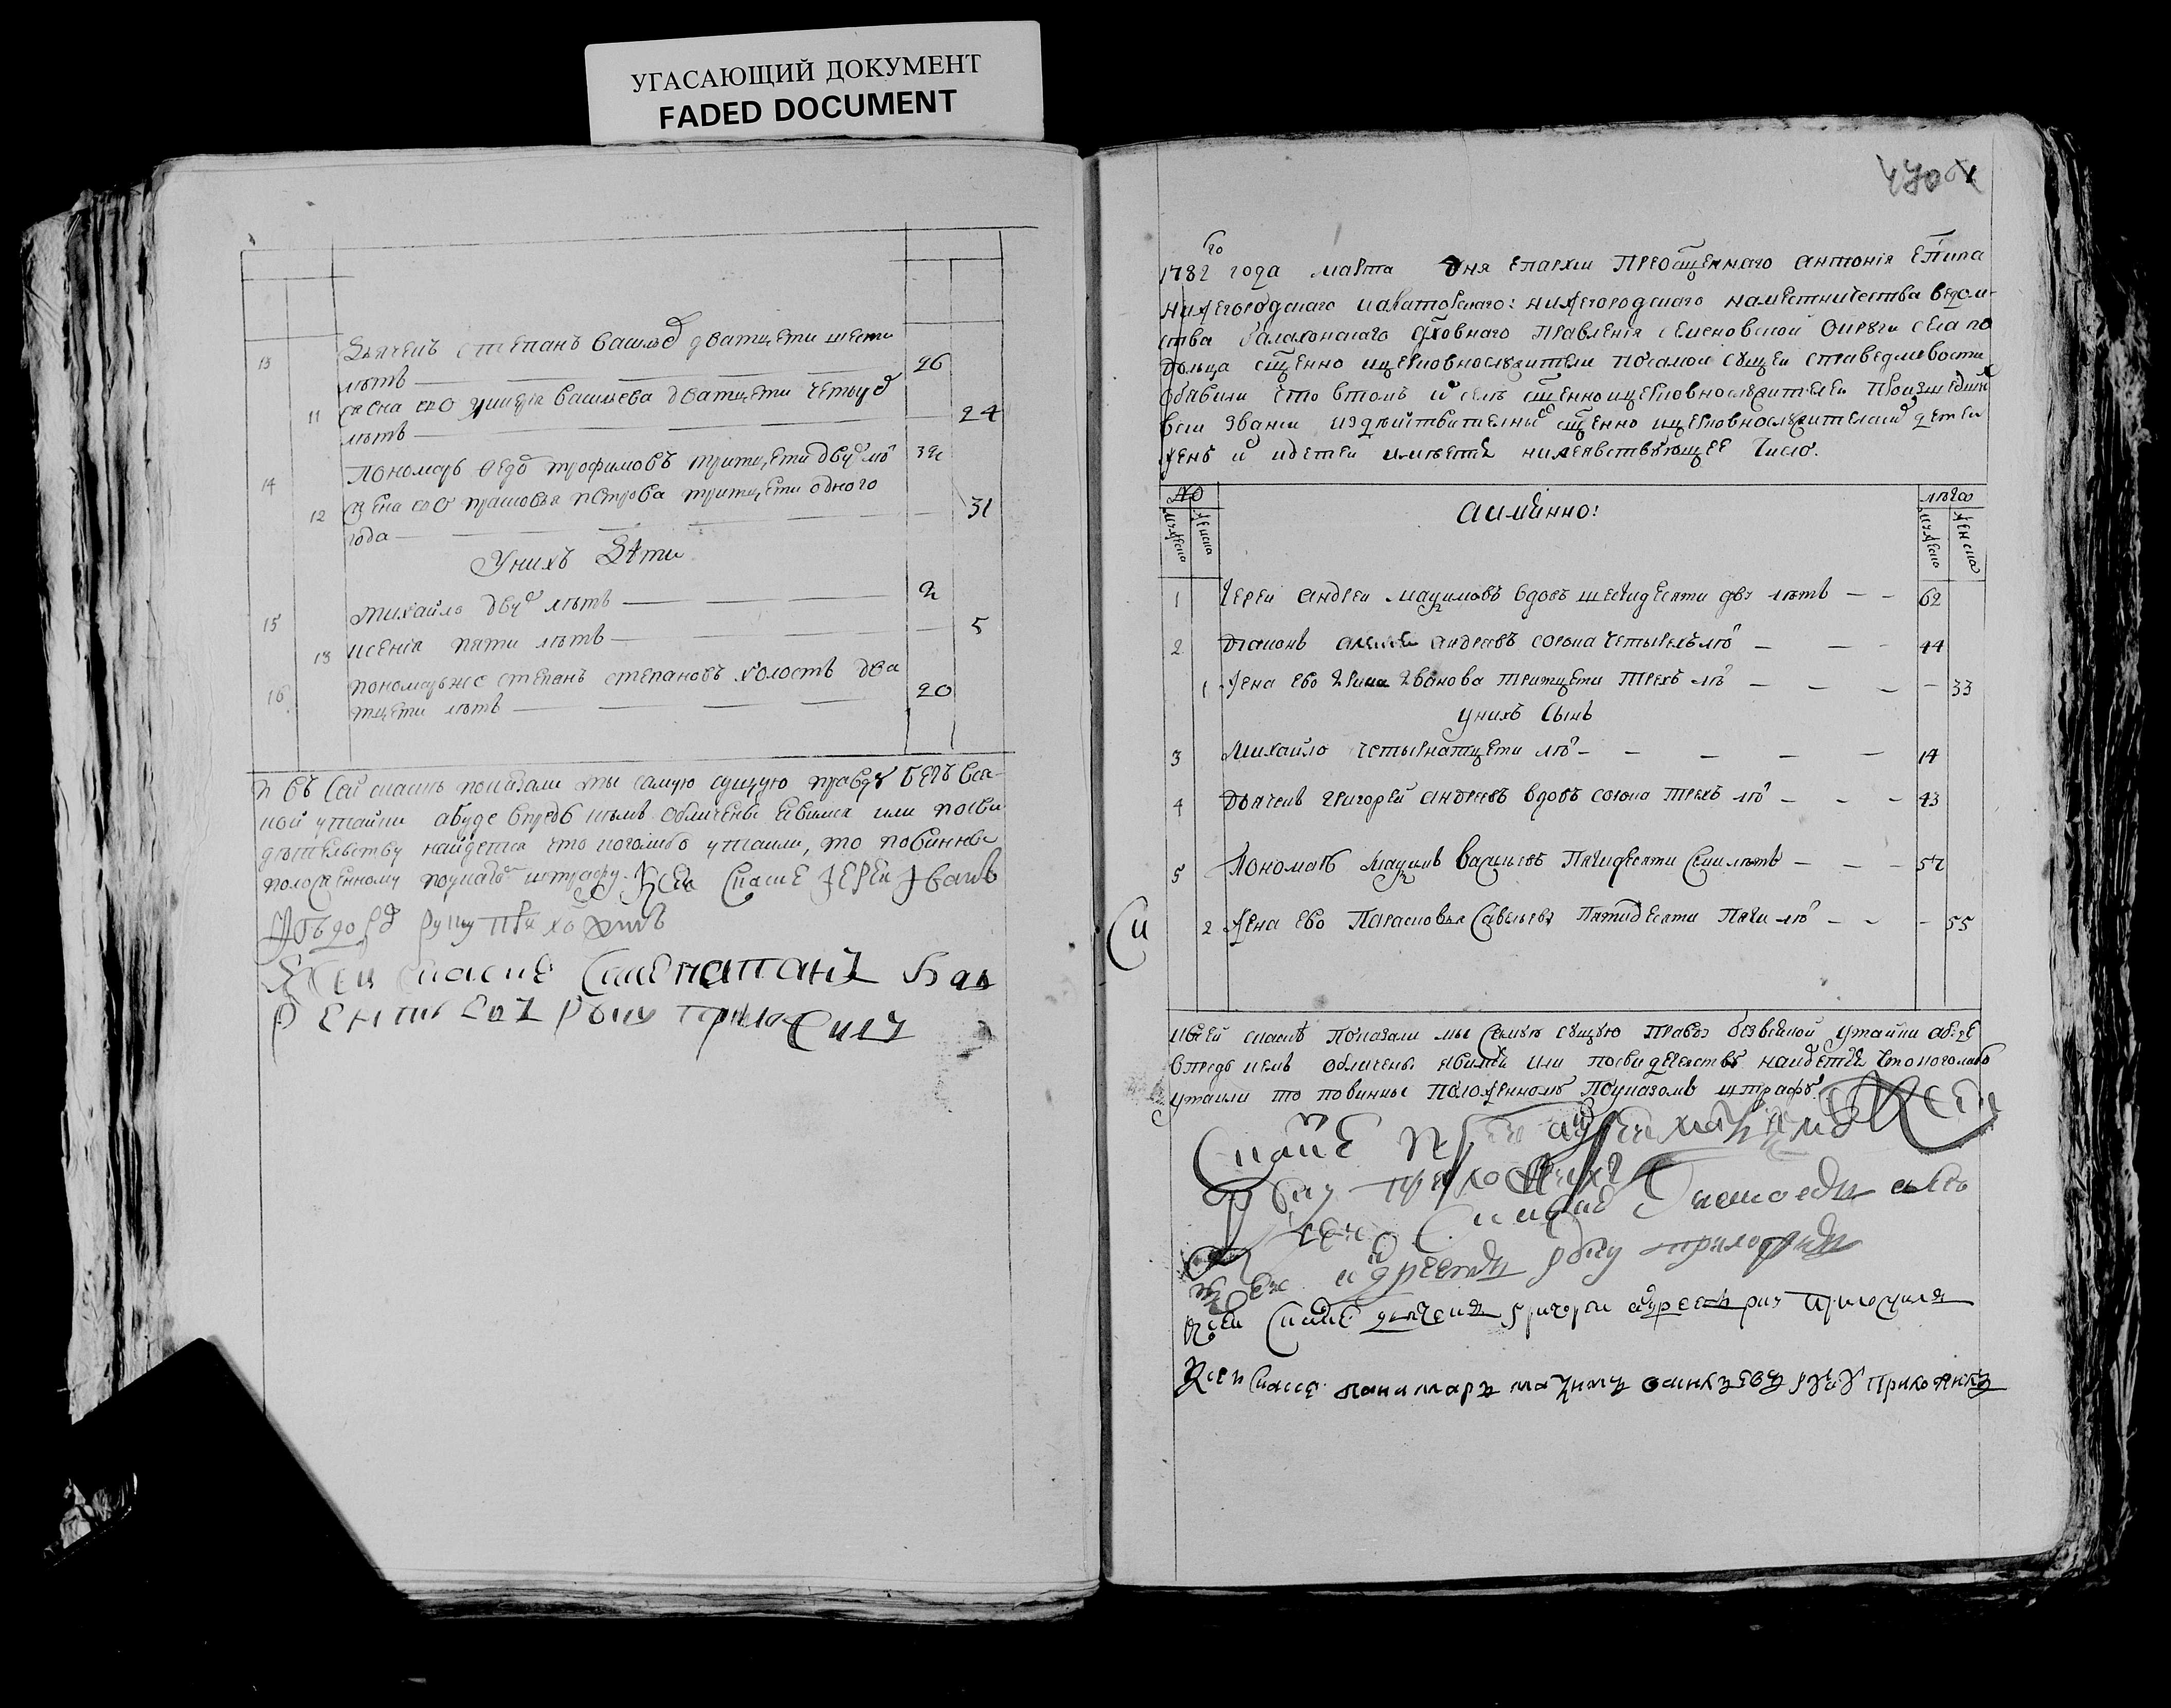 УГАСАЮЩИЙ ДОКУМЕНТ
FADED DOCUMENT
13 Дьячекъ степанъ васильев дватцети шести
лѣтъ 26
11 жена ево васильева дватцети четырех
лѣтъ 24
14 Пономарь ѳедор трофимовъ тритцети двух лѣ 32
12 жена ево прасковья петрова тритцети одного
года 31
У нихъ Дѣти
15 михайло двух лѣтъ 2
13 ксения пяти лѣтъ 5
16 пономарь же степанъ степановъ холостъ два
тцети лѣтъ 20
в сей скаскѣ показали мы самую сущую правду безъ вся-
кой утайки а буде впредь кѣмъ обличены явимся или по сви
дѣтельству найдется что кого либо утаили, то повинны
положенному по указом штрафу. К сей скаске Иерей Иванъ
руку приложилъ
К сей скаске
руку приложилъ
470
1782 го года марта дня епархии преосщеннаго антония епипа
нижегородскаго и алаторскаго: нижегородскаго наместничества ведом-
ства балахонскаго дховнаго правления семеновской округи села по
дольца сщенно и церковнослужители по самой сущей справедливости
обявили что в томъ селе сщенно и церковнослужителей произшедших
в сии звании из дѣйствителных сщенно и церковнослужителских детей
жен и их детей имѣется нижеявствующее число.
№ лѣта
мужеска женска а имянно: мужеска женска
1 Иерей андреи максимовъ вдовъ шестидесяти двух лѣтъ 62
2 дьяконъ алексей андреевъ сорока четырехъ лѣ 44
1 жена ево Ирина Иванова тритцети трехъ лѣ 33
у нихъ сынъ
3 Михайло четырнатцети лѣ 14
4 дьячекъ григорей андреевъ вдовъ сорока трехъ лѣ 43
5 Пономарь максимъ васильевъ пятидесяти семи лѣтъ 57
2 жена ево Парасковья савельева пятидесяти пяти лѣ 55
и в сей скаскѣ показали мы самую сущую правду безъ всякой утайки а буде
впредь кемъ обличены явимся или по свидетелству найдется что кого либо
утаили то повинны положенному по указомъ штрафу. К сей
скаске андрей максимов
руку приложилъ
андреевъ руку приложилъ
К сей скаске дьячекъ григорей андреевъ руку приложилъ
К сей скаске панамарь максимъ руку приложилъ